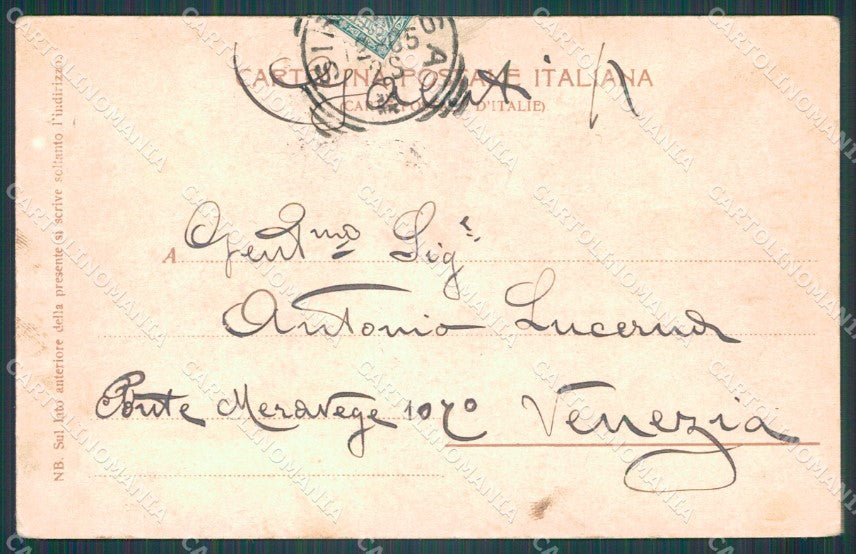 CARTOLINA POSTALE ITALIANA
(CARTE POSTALE D'ITALIE)
A Gent.mo Sig.r
Antonio Lucerna
Ponte Meravege 1070 Venezia
NB. Sul lato anteriore della presente si scrive soltanto l'indirizzo
CARTOLINOMANIA